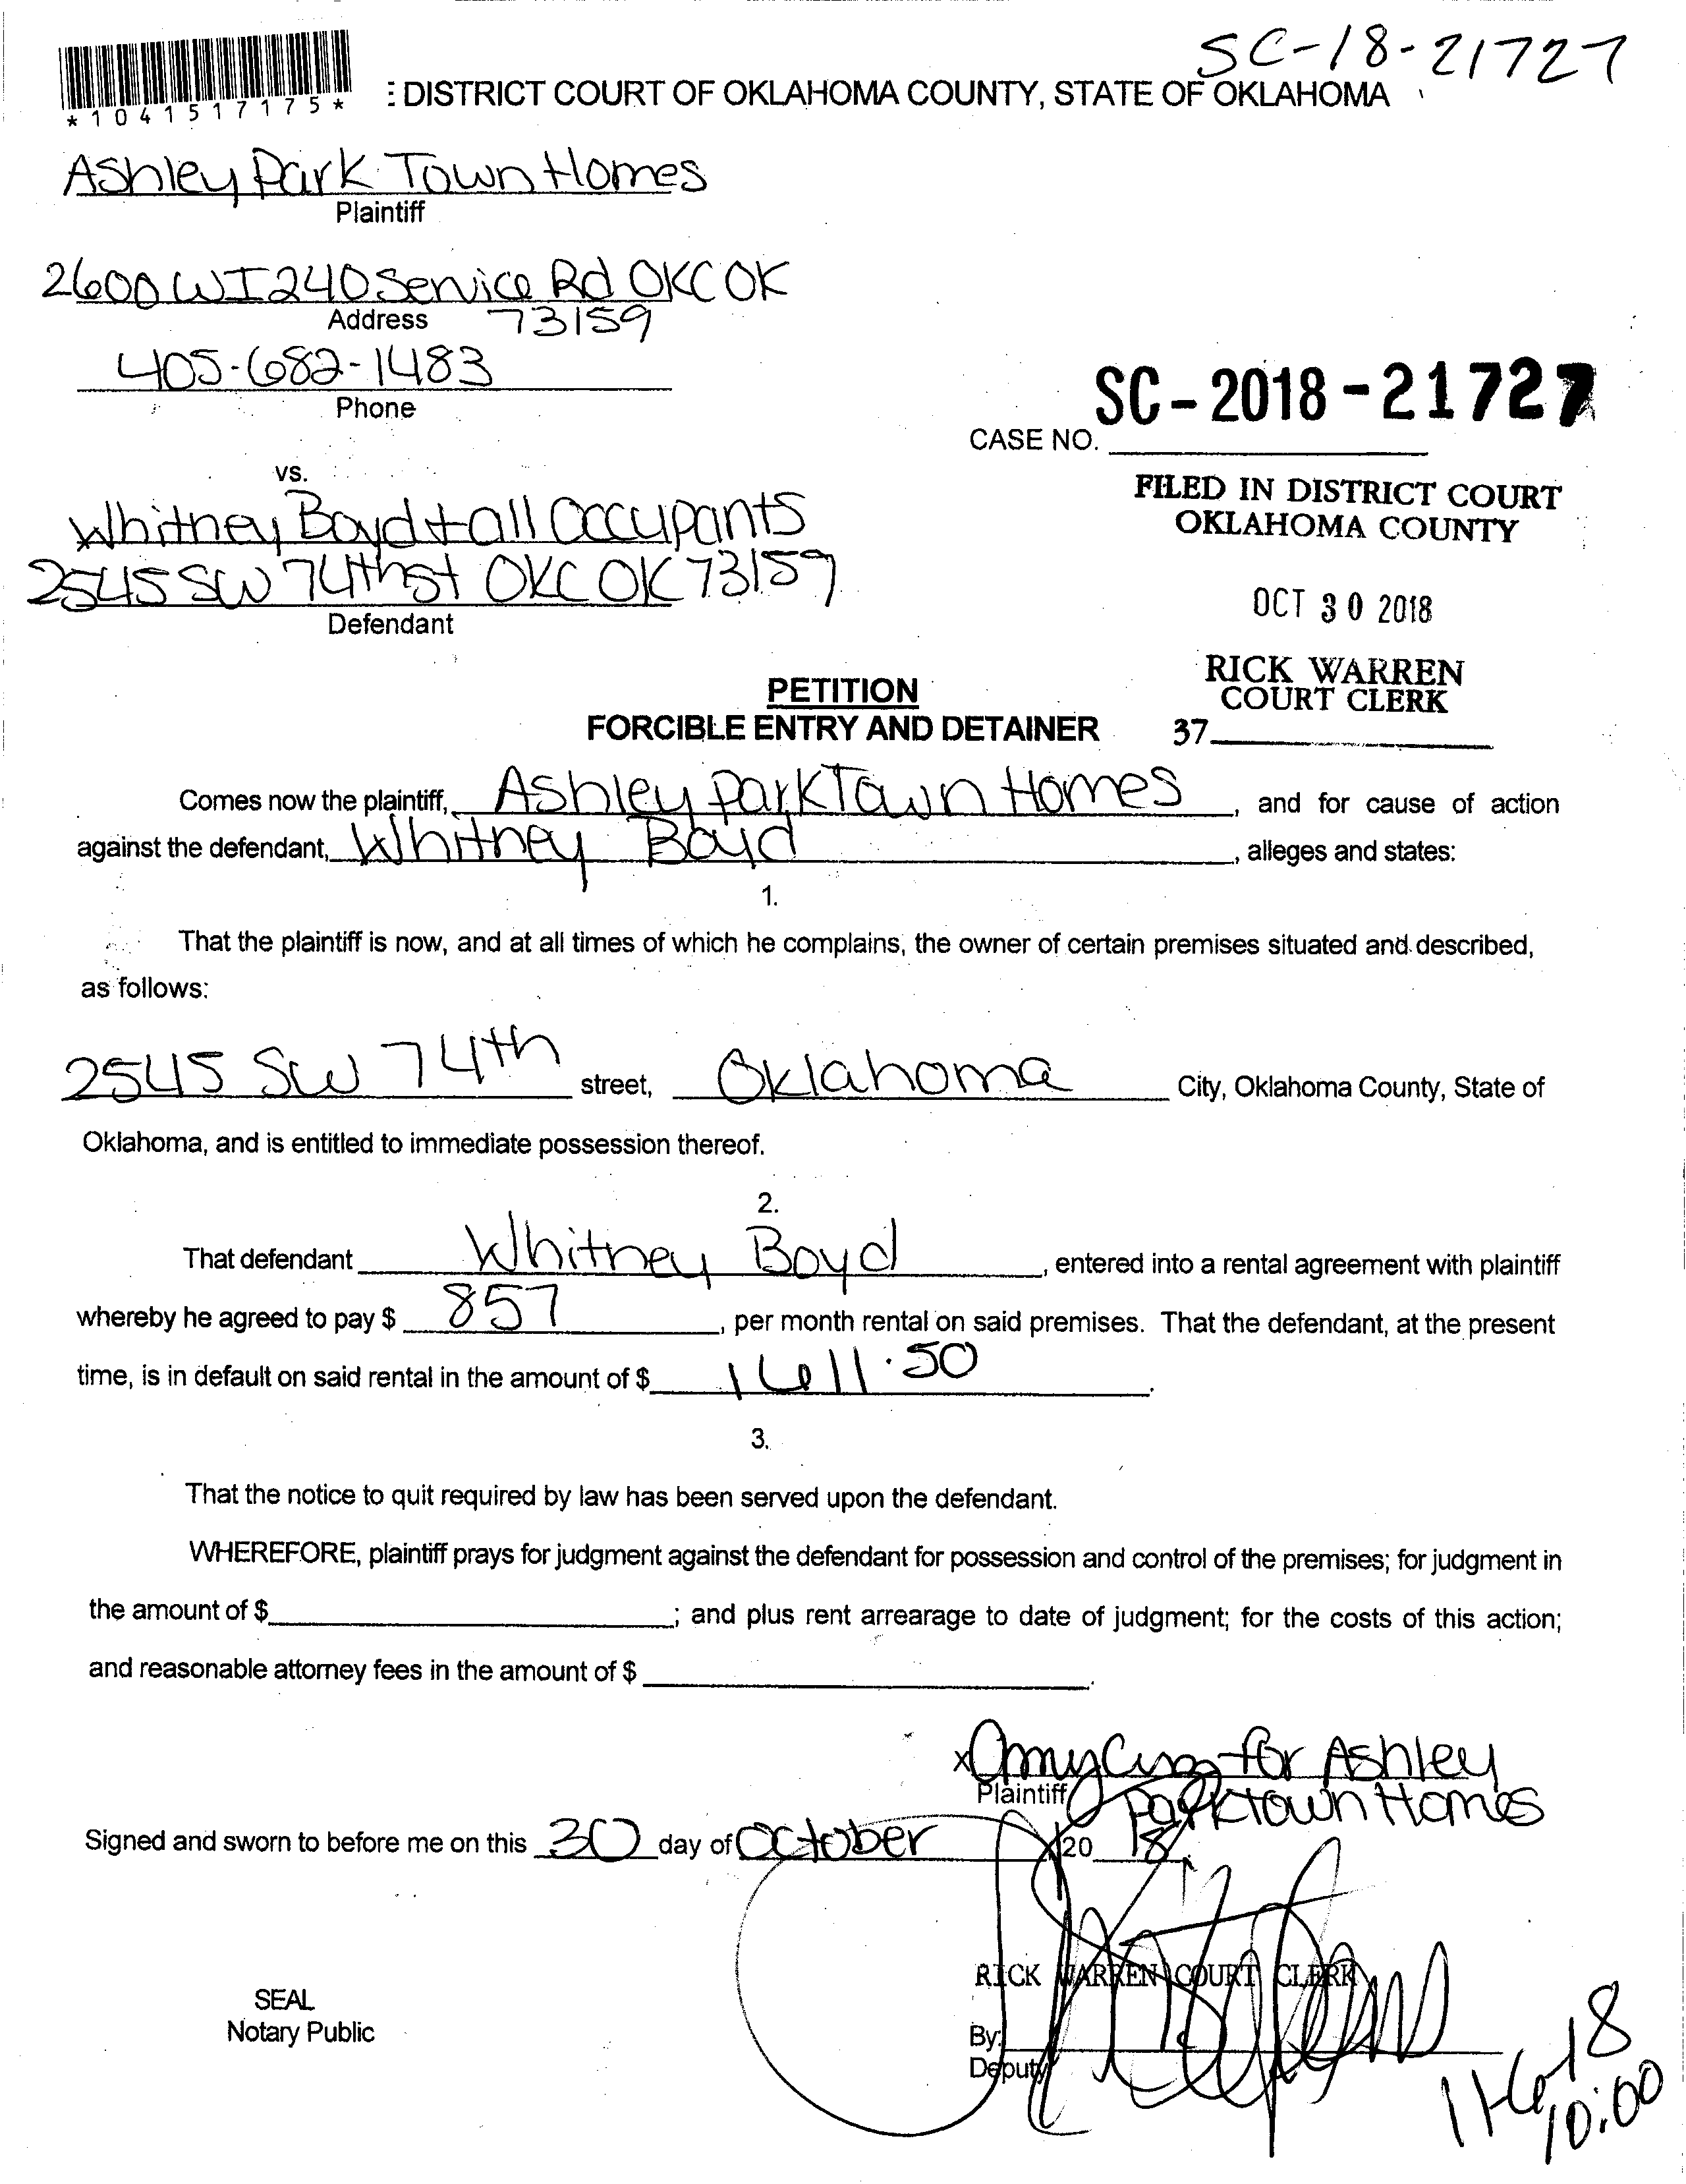 SC-18-21727
*1041517175*
: DISTRICT COURT OF OKLAHOMA COUNTY, STATE OF OKLAHOMA
Ashley Park Town Homes
Plaintiff
2600 W I 240 Service Rd OKC OK
Address 73159
405-682-1483
Phone
SC-2018-21727
CASE NO.
vs.
FILED IN DISTRICT COURT
OKLAHOMA COUNTY
Whitney Boyd + all Occupants
2545 SW 74th st OKC OK 73159
Defendant
OCT 30 2018
RICK WARREN
COURT CLERK
37
PETITION
FORCIBLE ENTRY AND DETAINER
Comes now the plaintiff, Ashley Park Town Homes, and for cause of action
against the defendant, Whitney Boyd, alleges and states:
1.
That the plaintiff is now, and at all times of which he complains, the owner of certain premises situated and described,
as follows:
2545 SW 74th street, Oklahoma City, Oklahoma County, State of
Oklahoma, and is entitled to immediate possession thereof.
2.
That defendant Whitney Boyd, entered into a rental agreement with plaintiff
whereby he agreed to pay $ 857, per month rental on said premises. That the defendant, at the present
time, is in default on said rental in the amount of $ 1611.50.
3.
That the notice to quit required by law has been served upon the defendant.
WHEREFORE, plaintiff prays for judgment against the defendant for possession and control of the premises; for judgment in
the amount of $; and plus rent arrearage to date of judgment; for the costs of this action;
and reasonable attorney fees in the amount of $.
x Amy for Ashley
Plaintiff Park Town Homes
Signed and sworn to before me on this 30 day of October, 20 18
RICK WARREN COURT CLERK
SEAL
Notary Public
By:
Deputy
11-6-18
10:00